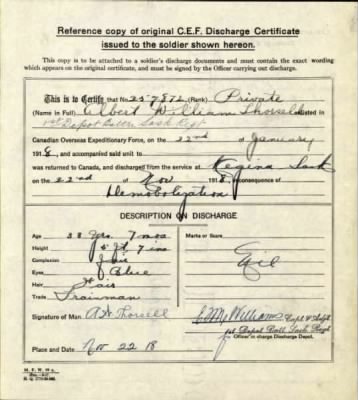 Reference copy of original C.E.F. Discharge Certificate
issued to the soldier shown hereon.
This copy is to be attached to a soldier's discharge documents and must contain the exact wording
which appears on the original certificate, and must be signed by the Officer carrying out discharge.
This is to Certify that No 257872 (Rank) Private
(Name in Full) Albert William Thorsell enlisted in
1st Depot Battn. Sask Regt
Canadian Overseas Expeditionary Force, on the 22nd of January
1918, and accompanied said unit to
was returned to Canada, and discharged from the service at Regina Sask
on the 22nd of Nov 1918, in consequence of
Demobolization
DESCRIPTION ON DISCHARGE
Age 38 Yrs. 7 mos
Height 5 ft 7 ins
Complexion Fair
Eyes Blue
Hair Fair
Trade Trainman
Marks or Scars
Signature of Man A.W. Thorsell
Place and Date Nov 22 18
Williams Capt
1st Depot Batt Sask Regt
Officer in charge Discharge Depot.